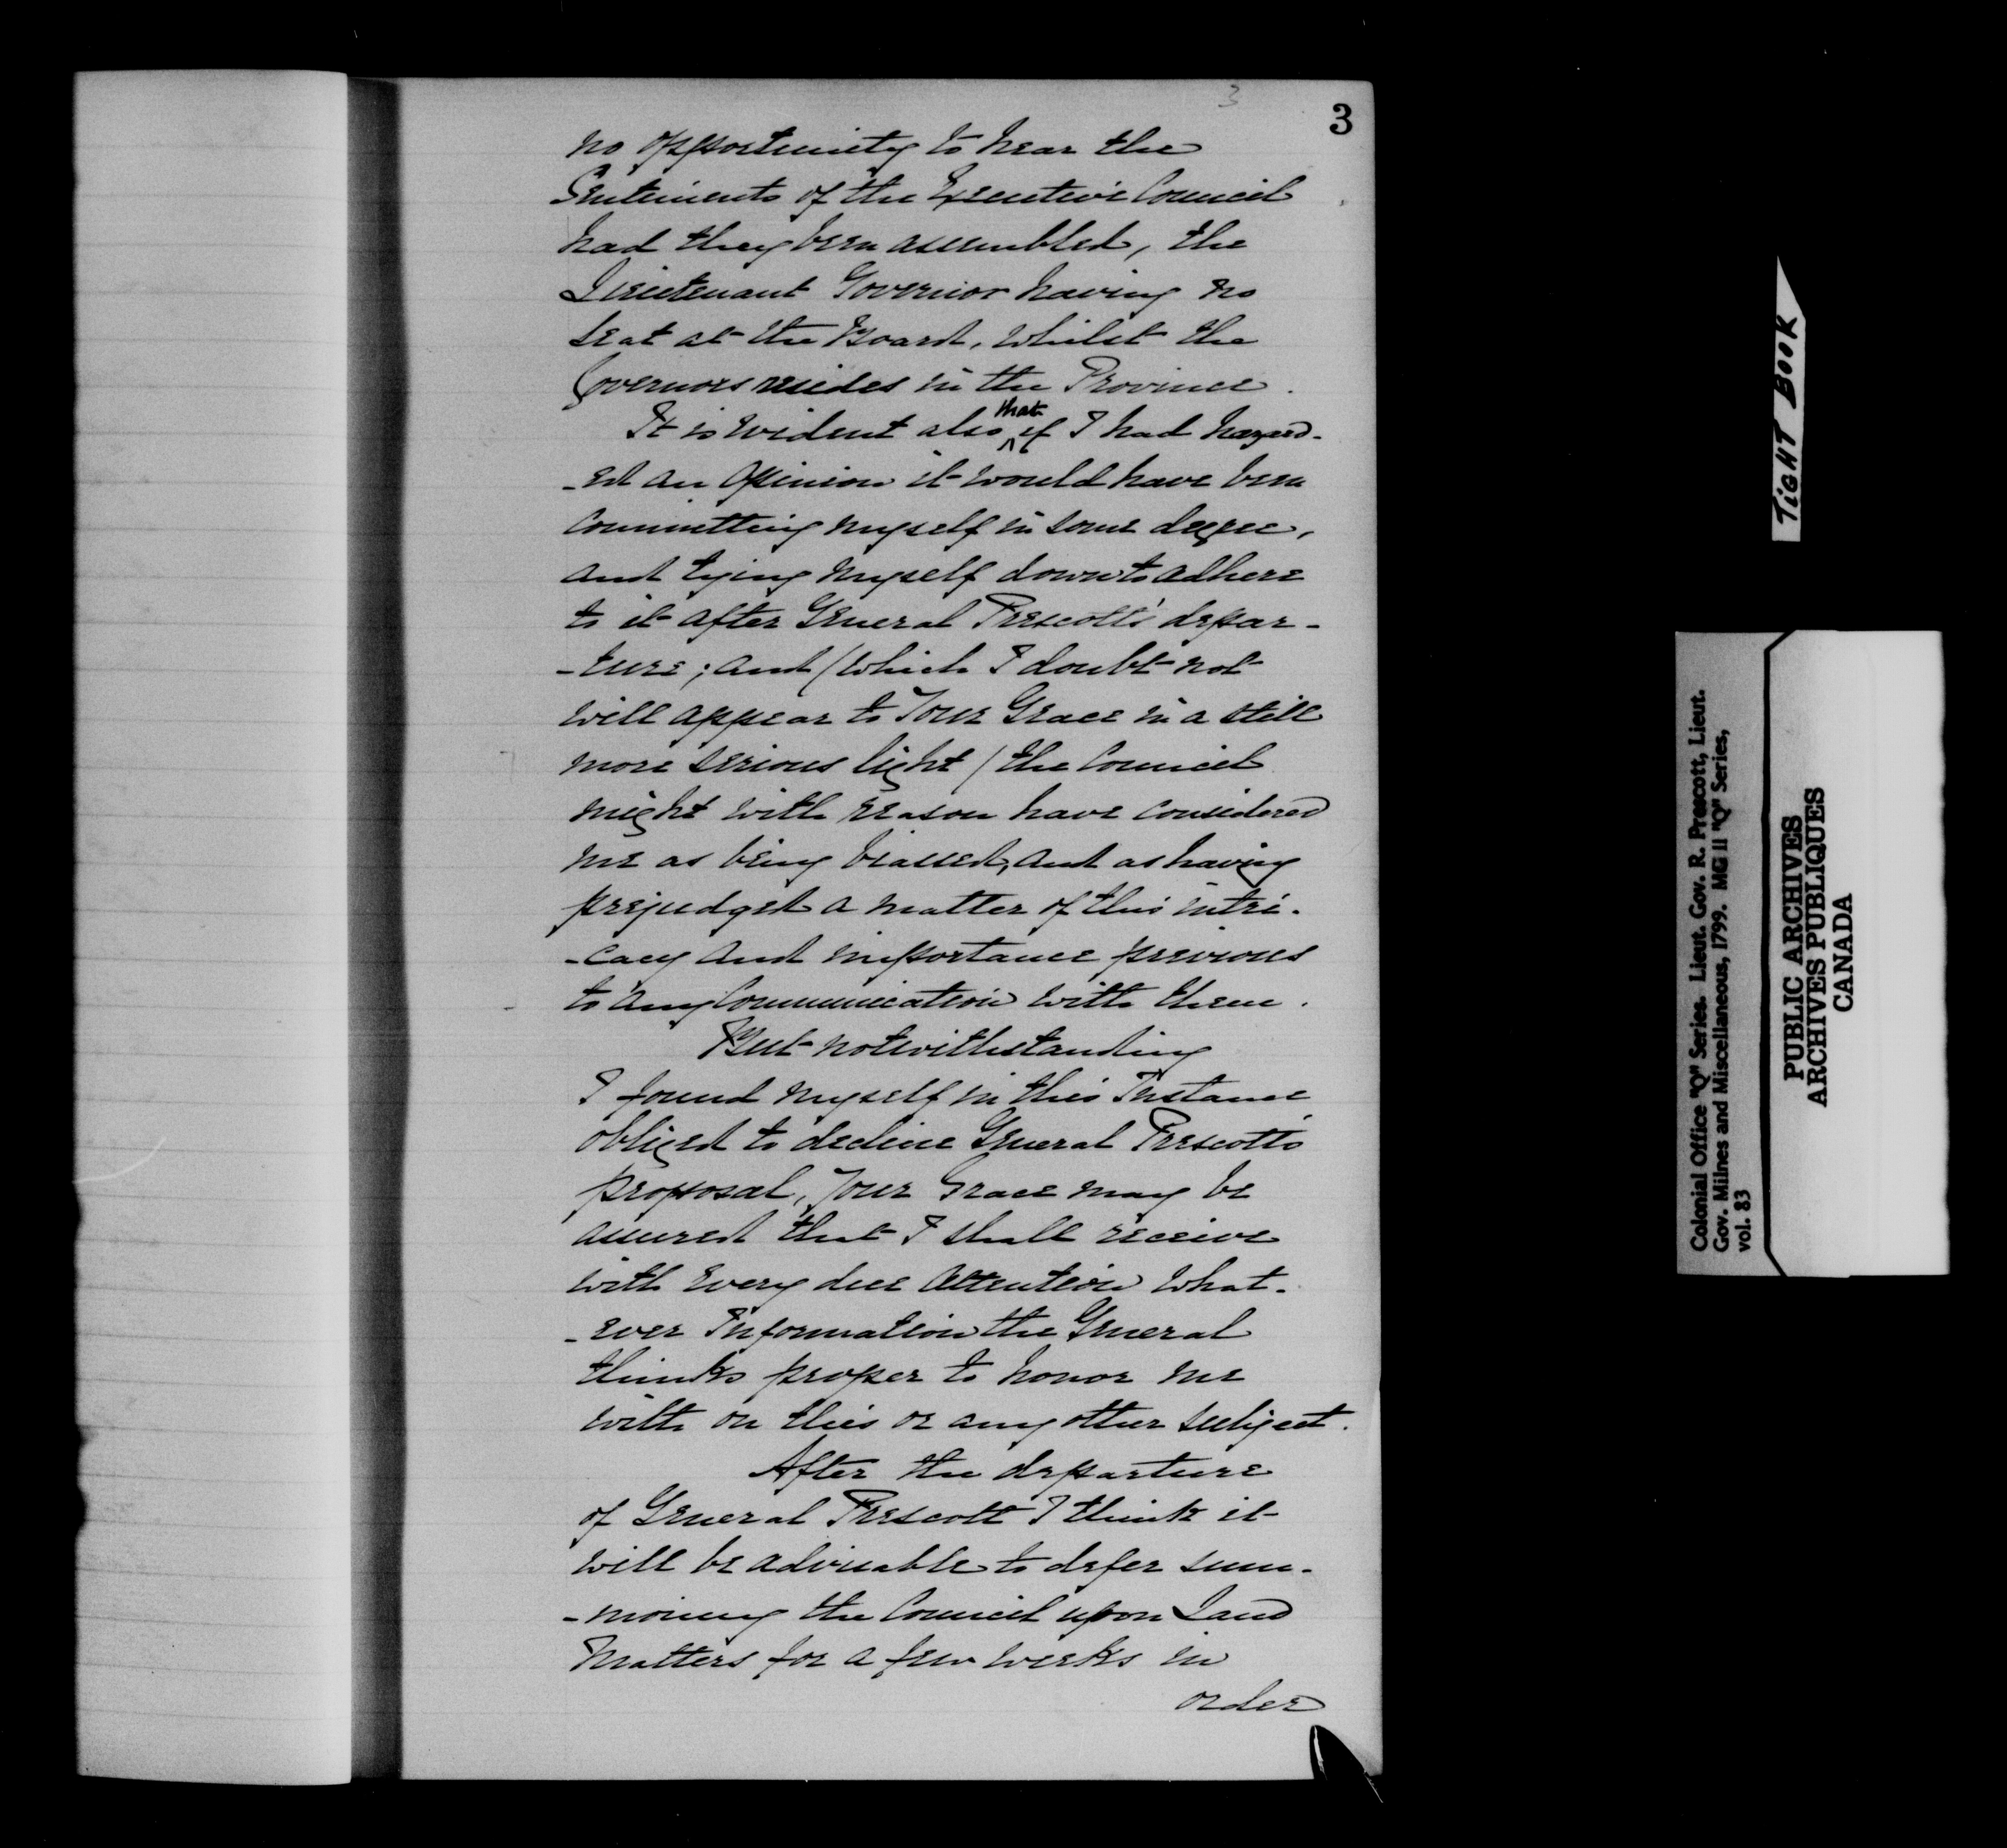 3
3
no opportunity to hear the
Sentiments of the Executive Council
had they been assembled, the
Lieutenant Governor having no
seat at the Board, whilst the
Governors resides in the Province.
It is evident also that if I had hazard-
-ed an Opinion it would have been
committing myself in some degree,
and tying myself down to adhere
to it after General Prescott's depar-
-ture; and (which I doubt not
will appear to Your Grace in a still
more serious light / the Council
might with reason have considered
me as being biassed, and as having
prejudged a matter of this intri-
-cacy and importance previous
to any Communication with them.
But notwithstanding
I found myself in this Instance
obliged to decline General Prescott's
proposal, Your Grace may be
assured that I shall receive
with every due Attention what-
-ever Information the General
thinks proper to honor me
with on this or any other subject.
After the departure
of General Prescott I think it
will be adviseable to defer sum-
-moning the Council upon Land
Matters for a few weeks in
order
TIGHT BOOK
Colonial Office "Q" Series. Lieut. Gov. R. Prescott, Lieut.
Gov. Milnes and Miscellaneous, 1799. MG 11 "Q" Series,
vol. 83
PUBLIC ARCHIVES
ARCHIVES PUBLIQUES
CANADA